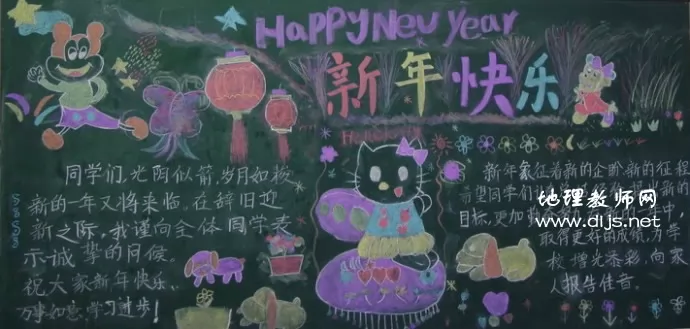 HAPPY New Year
新年快乐
同学们，光阴似箭，岁月如梭
新的一年又将来临，在辞旧迎
新之际，我谨向全体同学表
示诚挚的问候。
祝大家新年快乐、
万事如意，学习进步！
新年象征着新的企盼，新的征程
希望同学们
新的
目标，更加
中，
取得更好的成绩，为学
校增光添彩，向家
人报告佳音。
地理教师网
www.dljs.net